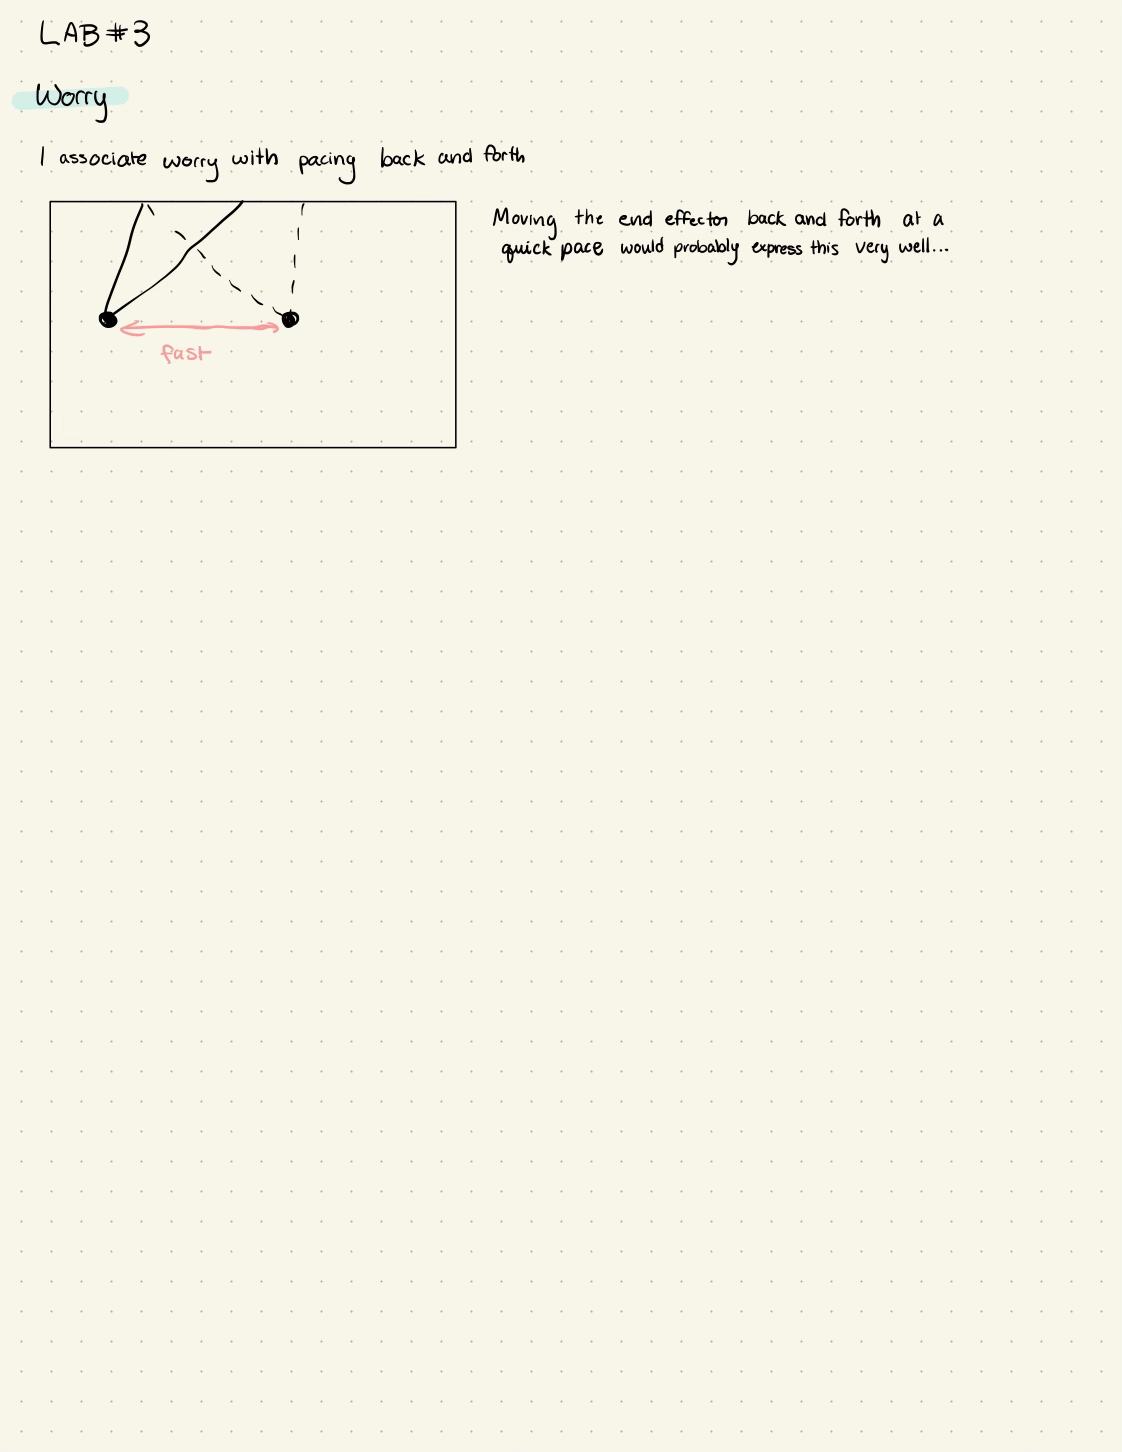 LAB #3
Worry
I associate worry with pacing back and forth
Moving the end effector back and forth at a
quick pace would probably express this very well...
fast